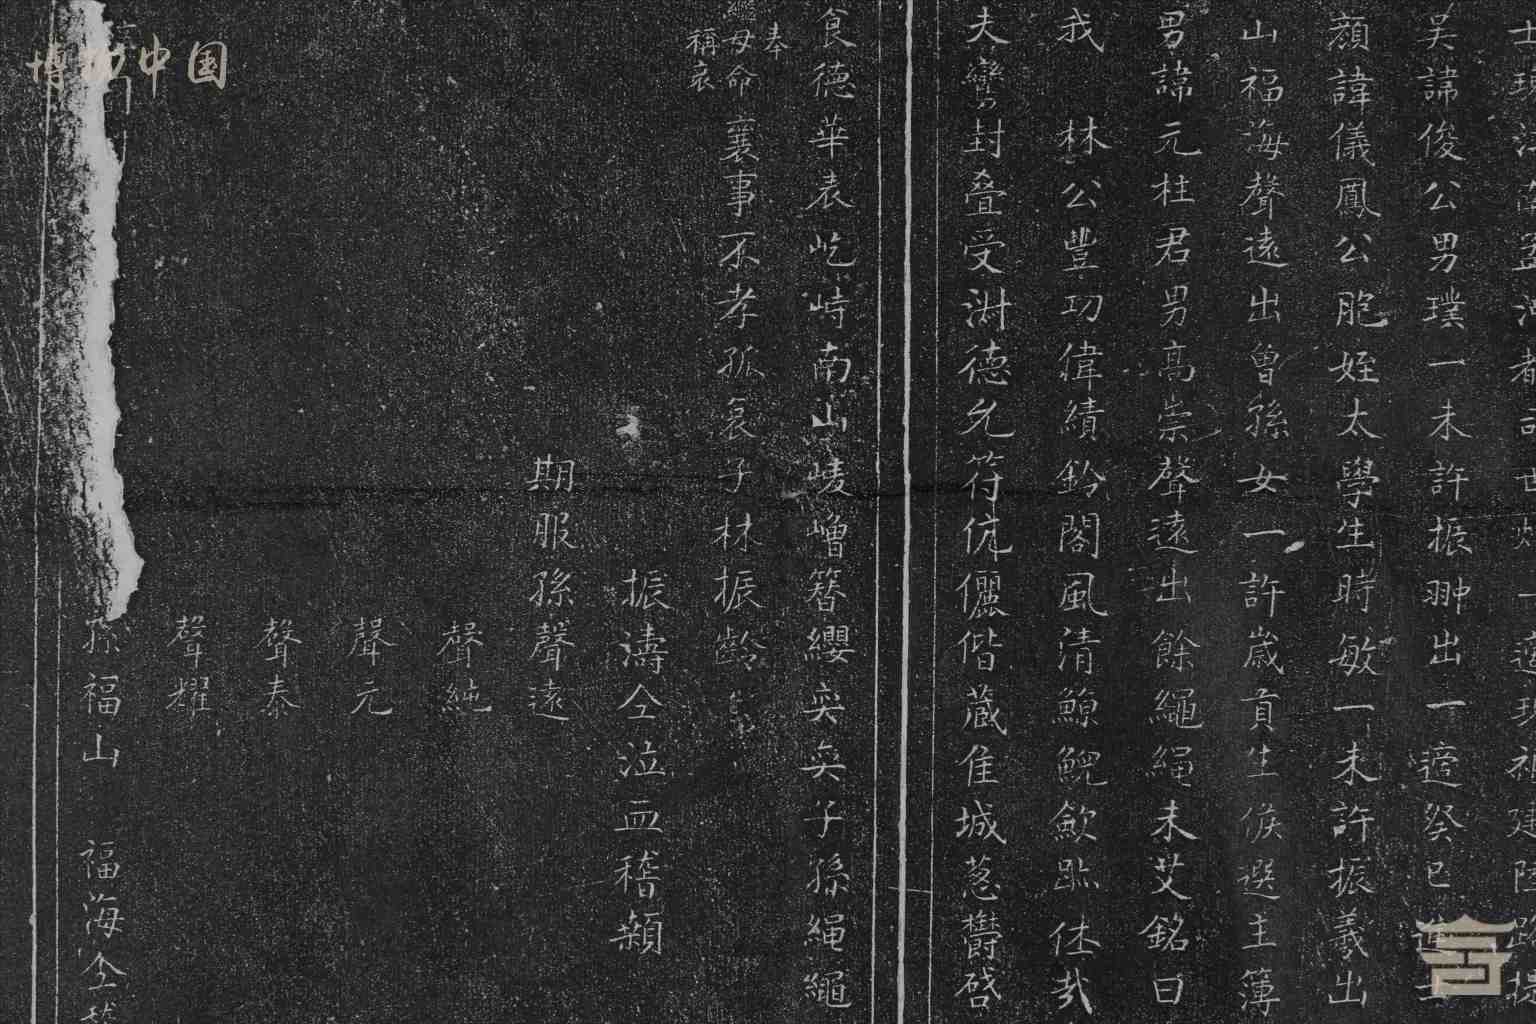 吴諱俊公男璞一未許振翀出一適癸巳進士
顏諱儀鳳公胞姪太學生時敏一未許振羲出
山福海聲遠出曾孫女一許歲貢生候選主簿
男諱元柱君男高崇聲遠出餘繩繩未艾銘曰
我 林公豐功偉績鈐閣風清鯨鯢歛跡休哉
夫 封叠受淋德允符伉儷偕藏佳城葱欝啓
食德華表屹峙南山崚嶒簪纓奕奕子孫繩繩
奉
母命
稱哀
襄事不孝孤哀子林振齡
振濤仝泣血稽顙
期服孫聲遠
聲純
聲元
聲泰
聲耀
孫福山 福海仝
博物中国